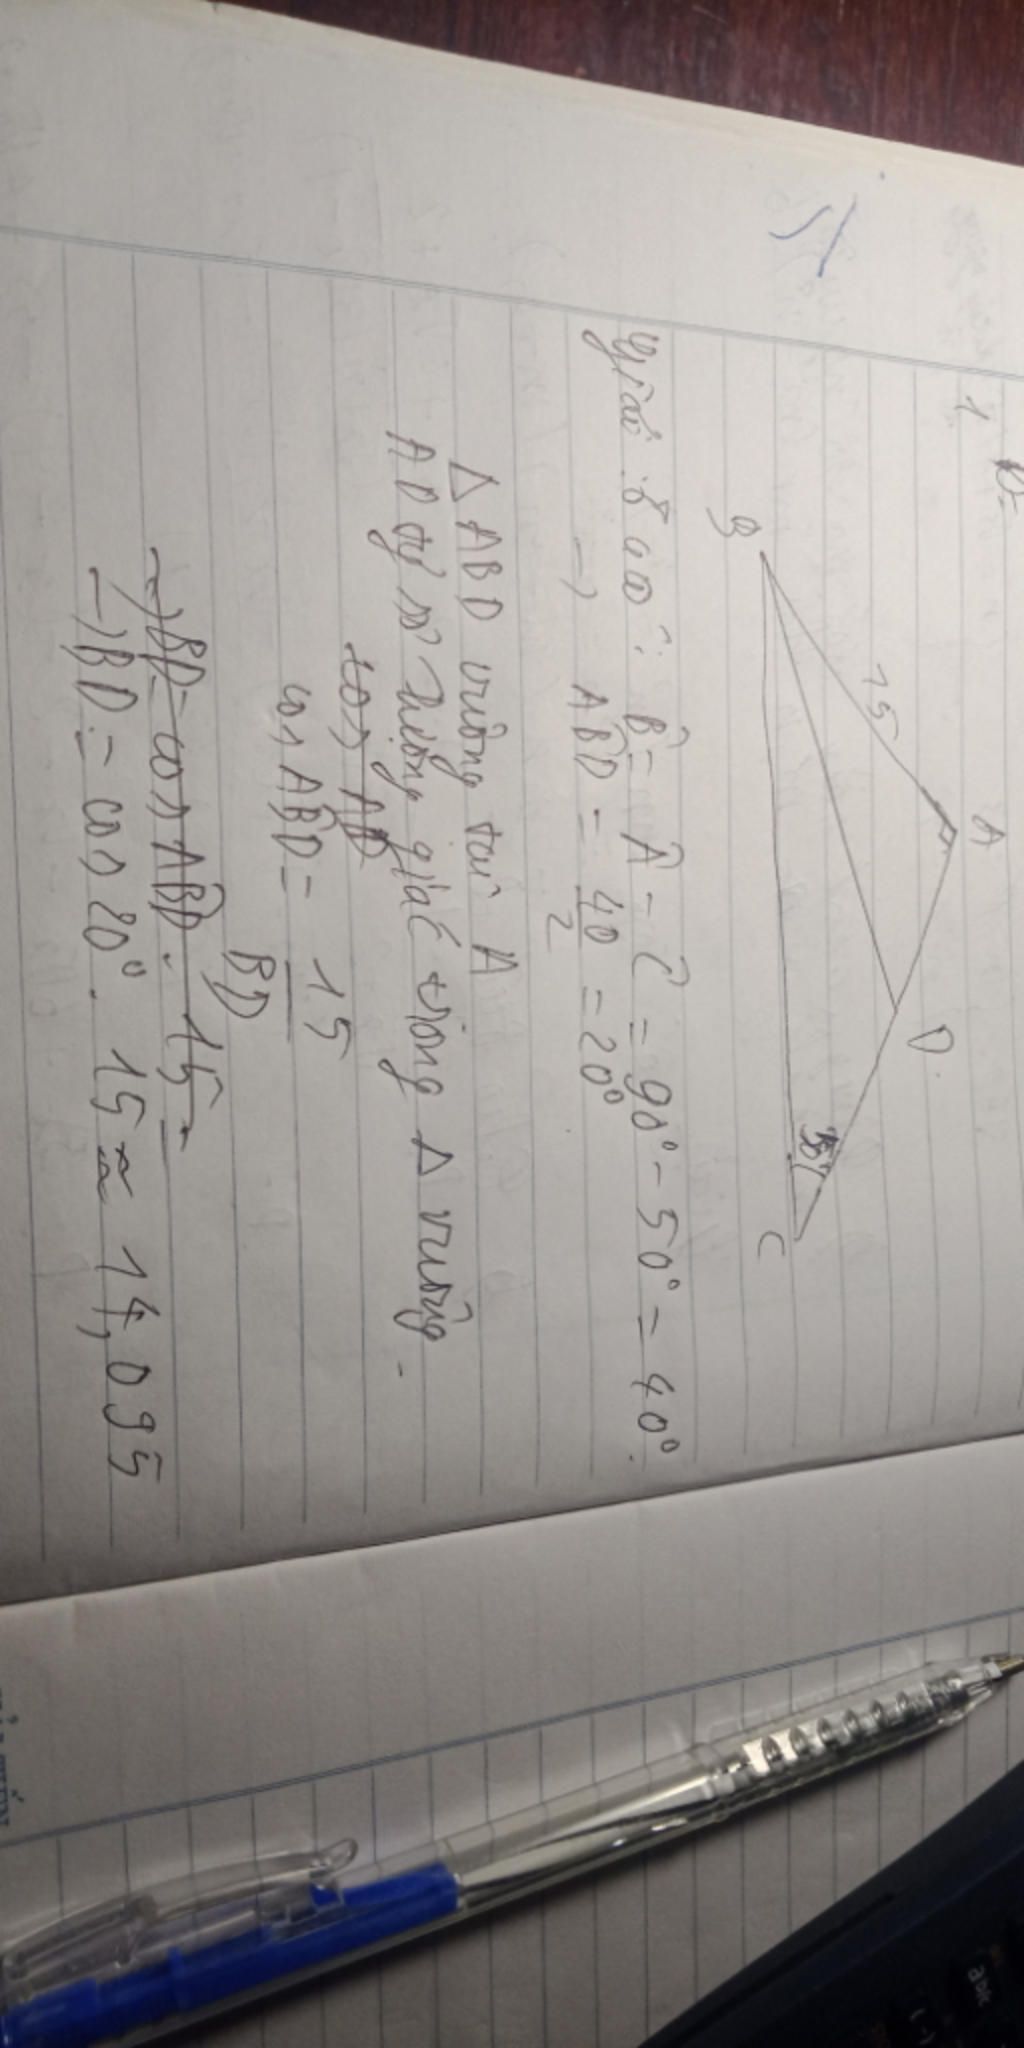 1
A
15
D
B
50°
C
Giải: B̂ = Â - Ĉ = 90° - 50° = 40°.
→ AB̂D = 40/2 = 20°
Δ ABD vuông tại A
AD tỷ số lượng giác trong Δ vuông.
cos AB̂D = 15/BD
→ BD = cos AB̂D . 15 =
→ BD = cos 20° . 15 ≈ 14,095
abc
(-)